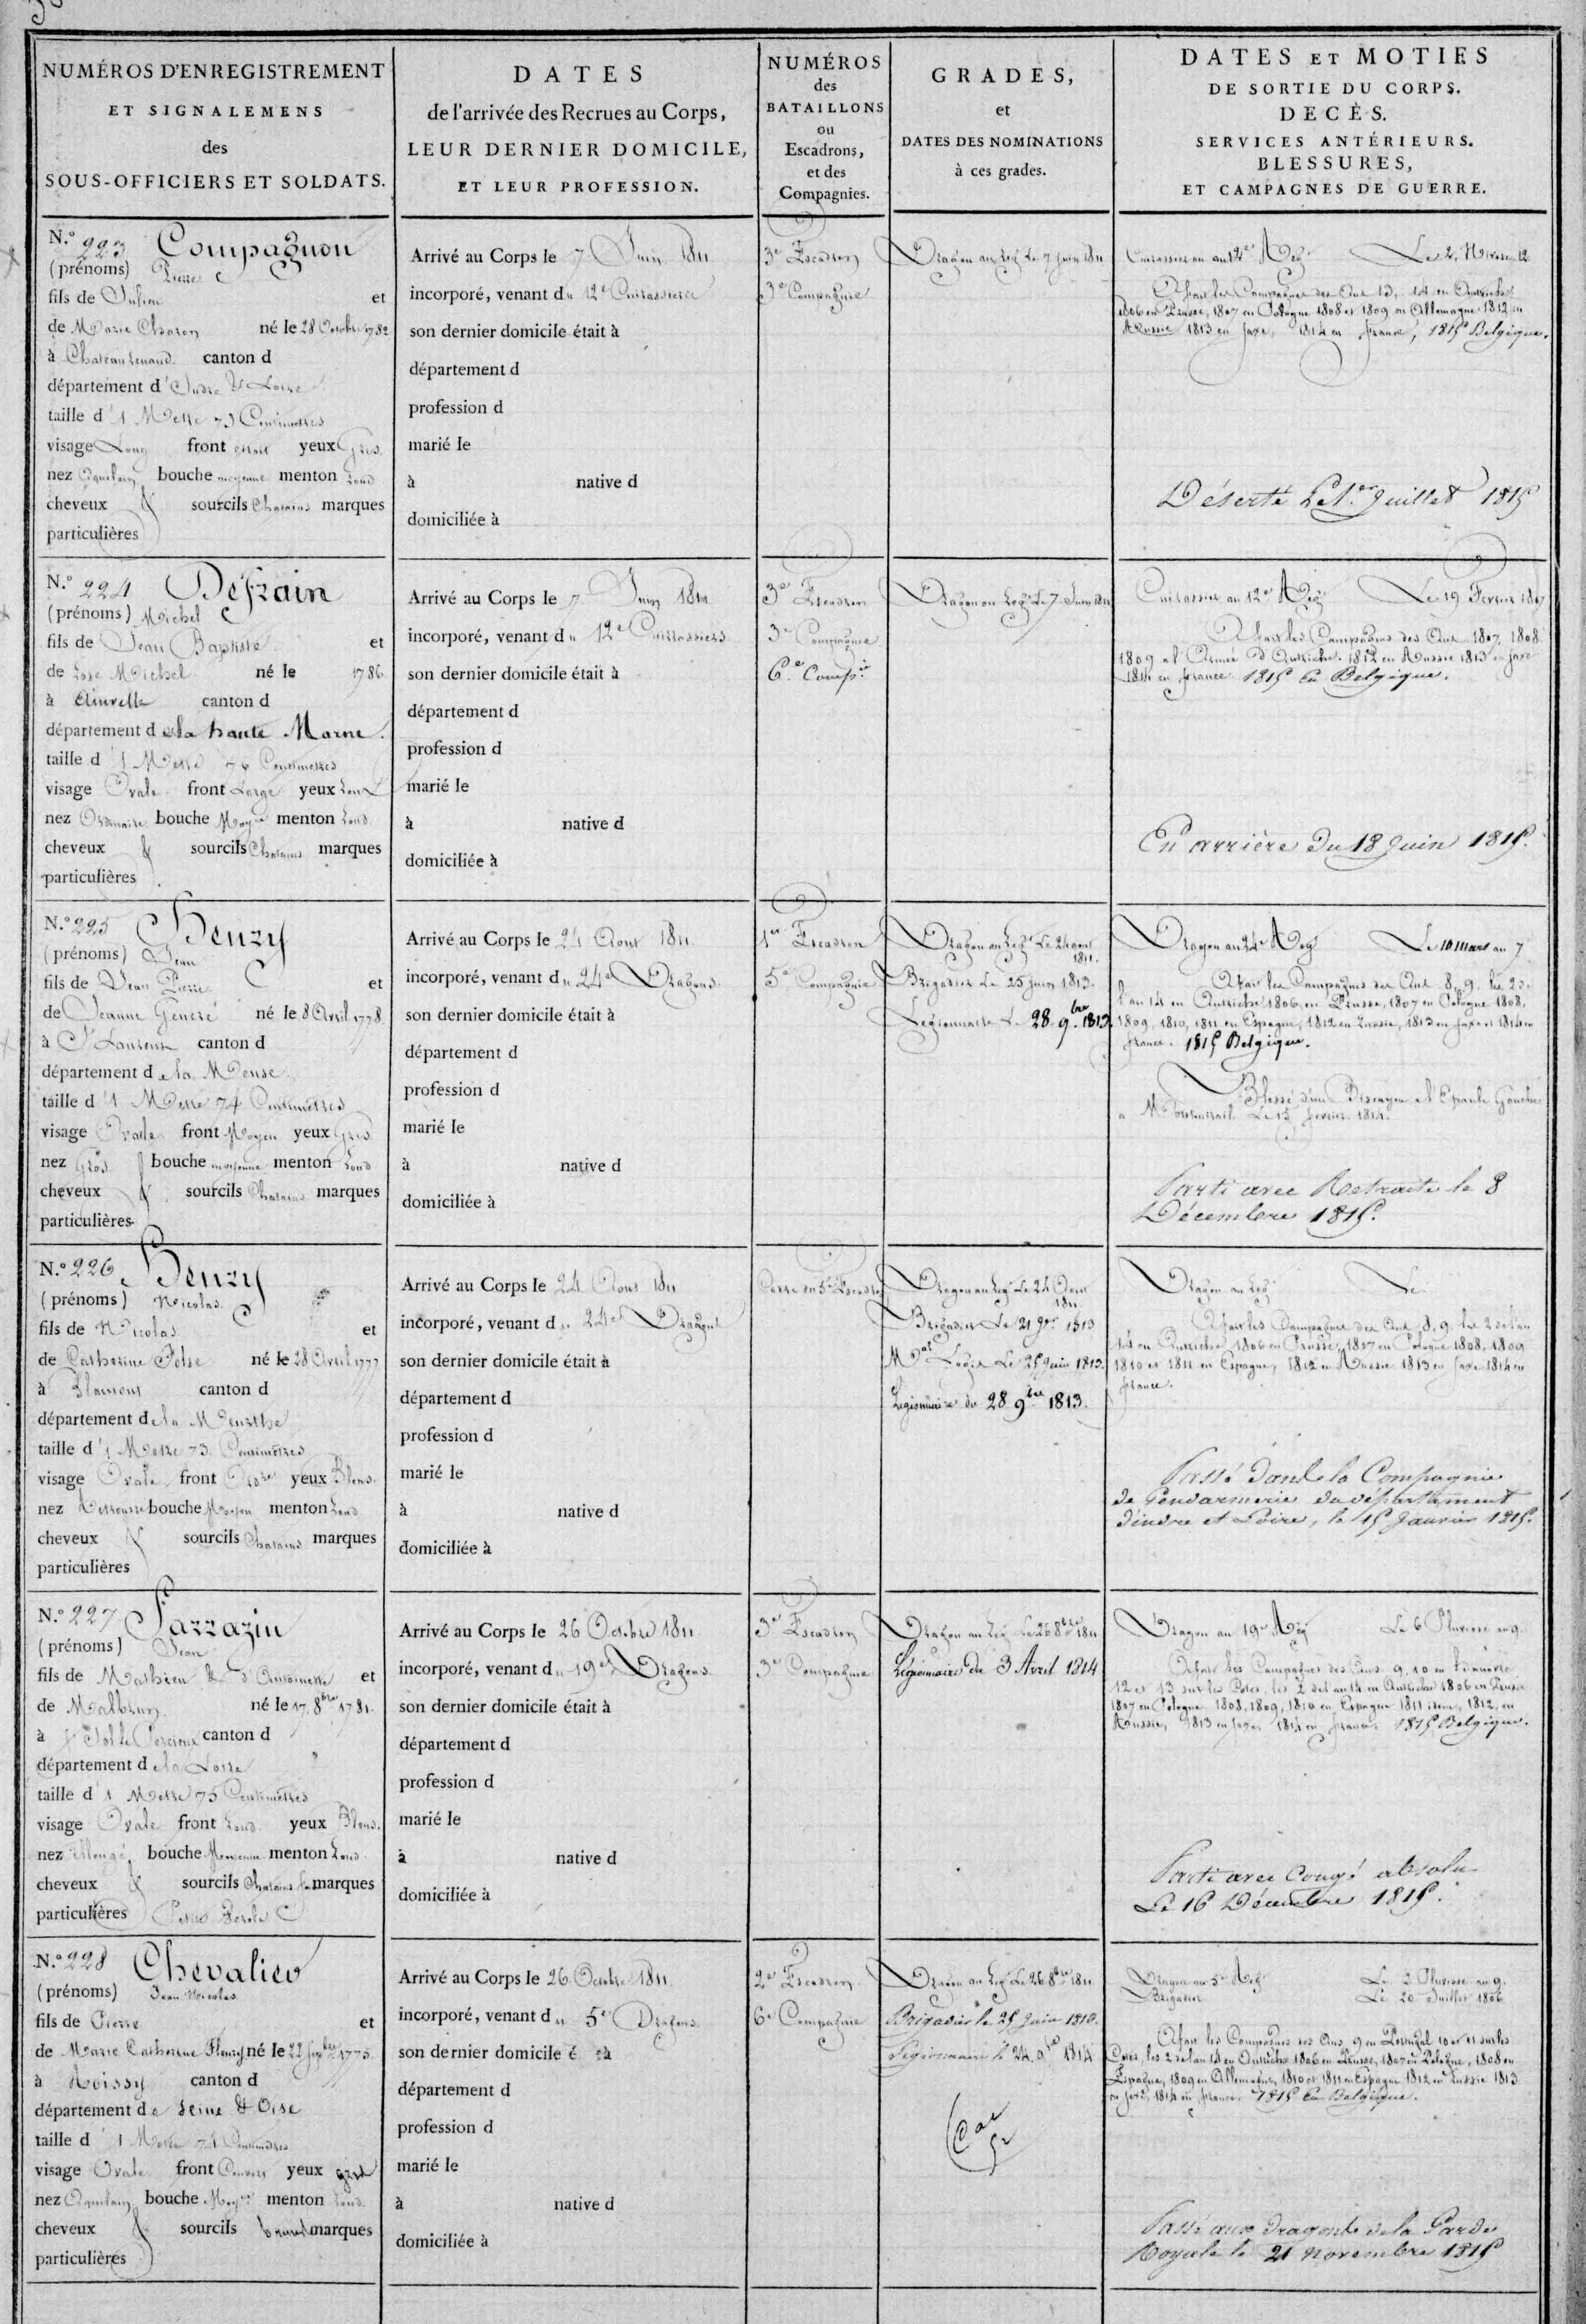 NUMÉROS D'ENREGISTREMENT
ET SIGNALEMENS
des
SOUS-OFFICIERS ET SOLDATS.
DATES
de l'arrivée des Recrues au Corps,
LEUR DERNIER DOMICILE,
ET LEUR PROFESSION.
NUMÉROS
des
BATAILLONS
ou
Escadrons,
et des
Compagnies.
GRADES,
et
DATES DES NOMINATIONS
à ces grades.
DATES ET MOTIFS
DE SORTIE DU CORPS.
DECÈS.
SERVICES ANTÉRIEURS.
BLESSURES,
ET CAMPAGNES DE GUERRE.
N.º 223 Compagnon
(prénoms) Pierre
fils de Julien et
de Marie Charon né le 28 Octobre 1782
à Chateaurenaud canton d
département d'Indre & Loire
taille d'1 Metre 73 Centimetres
visage Long front étroit yeux Gris
nez Aquilain bouche moyenne menton Rond
cheveux & sourcils Chatains marques
particulières
Arrivé au Corps le 7 Juin 1811
incorporé, venant du 12e Cuirassiers
son dernier domicile était à
département d
profession d
marié le
à native d
domiciliée à
3e Escadron
3e Compagnie
Dragon au Reg.t Le 7 Juin 1811
Cuirassier au 12e Reg.t Le 2, Nivose 12
A fait les Campagnes des Ans 13, 14 en Autriche
1806 en Prusse, 1807 en Pologne 1808 et 1809 en Allemagne 1812 en
Russie 1813 en Saxe, 1814 en france, 1815 Belgique.
Déserté Le 1.er Juillet 1815
N.º 224 Defrain
(prénoms) Michel
fils de Jean Baptiste et
de Rose Michel né le 1786
à canton d
département de la haute Marne.
taille d'1 Metre 76 Centimetres
visage Ovale front Large yeux Roux
nez Ordinaire bouche Moy.ne menton Rond
cheveux & sourcils Chatains marques
particulières
Arrivé au Corps le 7 Juin 1811
incorporé, venant du 12e Cuirassiers
son dernier domicile était à
département d
profession d
marié le
à native d
domiciliée à
3e Escadron
3e Compagnie
6.e Comp.ie
Dragon au Reg.t Le 7 Juin 1811
Cuirassier au 12e Reg.t Le 19 Fevrier 1807
A fait les Campagnes des Ans 1807, 1808
1809 a l'Armée d'Autriche. 1812 en Russie 1813 en Saxe
1814 en france. 1815 En Belgique.
En arrière du 18 Juin 1815.
N.º 225 Henzy
(prénoms) Jean
fils de Jean Pierre et
de Jeanne Géneré né le 8 Avril 1778
à St Laurent canton d
département de la Meuse
taille d'1 Metre 74 Centimetres
visage Ovale front Moyen yeux Gris
nez Gros bouche moyenne menton Rond
cheveux & sourcils Chatains marques
particulières
Arrivé au Corps le 24 Aout 1811
incorporé, venant du 24e Dragons
son dernier domicile était à
département d
profession d
marié le
à native d
domiciliée à
1er Escadron
5e Compagnie
Dragon au Reg.t Le 24 aout
1811.
Brigadier Le 25 Juin 1813.
Legionnaire Le 28. 9.bre 1813
Dragon au 24e Reg.t Le 10 Mars an 7
A fait les Campagnes des Ans 8, 9. les 2 de
l'an 14 en Autriche 1806, en Prusse, 1807 en Pologne 1808,
1809, 1810, 1811 en Espagne, 1812 en Russie, 1813 en Saxe et 1814 en
france. 1815 Belgique.
Blessé d'un Biscayen a l'Epaule Gauche
a Montmirail Le 15 fevrier 1814.
Parti avec Retraite le 8
Décembre 1815.
N.º 226 Henzy
(prénoms) Nicolas
fils de Nicolas et
de Catherine né le 28 Avril 1777
à Blamont canton d
département de la Meurthe
taille d'1 Metre 73 Centimetres
visage Ovale front yeux Bleus
nez Retroussé bouche Moyen menton Rond
cheveux & sourcils Chatains marques
particulières
Arrivé au Corps le 24 Aout 1811
incorporé, venant du 24e Dragons
son dernier domicile était à
département d
profession d
marié le
à native d
domiciliée à
Dragon au Reg.t Le 24 Aout
1811
Brigadier Le 21 1813
M.al Logis Le 25 Juin 1813.
Legionnaire du 28. 9.bre 1813.
Dragon au Reg.t Le
A fait les Campagnes des Ans 8, 9. les 2 de l'an
14 en Autriche 1806 en Prusse, 1807 en Pologne 1808, 1809
1810 et 1811 en Espagne, 1812 en Russie 1813 en Saxe 1814 en
france.
Passé dans la Compagnie
de Gendarmerie du département
d'indre et Loire, le 15 Janvier 1815.
N.º 227 Sarrazin
(prénoms) Jean
fils de Mathieu & d'Antoinette et
de Malbrun né le 17. 8bre 1781.
à canton d
département de la Loire
taille d'1 Metre 75 Centimetres
visage Ovale front Rond yeux Bleus.
nez Allongé bouche Moyenne menton Rond
cheveux & sourcils Chatains marques
particulières Petite Verole
Arrivé au Corps le 26 Octobre 1811
incorporé, venant du 19e Dragons
son dernier domicile était à
département d
profession d
marié le
à native d
domiciliée à
3e Escadron
3e Compagnie
Dragon au Reg.t Le 26 8bre 1811
Légionnaire du 3 Avril 1814
Dragon au 19e Reg.t Le 6 Pluviose an 9.
A fait les Campagnes des Ans. 9, 10 en
12 et 13 sur les Cotes, les 2 de l'an 14 en Autriche 1806 en Prusse
1807 en Pologne 1808, 1809, 1810 en Espagne 1811 idem, 1812, en
Russie, 1813 en Saxe, 1814 en france. 1815 Belgique.
Parti avec Congé absolu
Le 16 Décembre 1815.
N.º 228 Chevalier
(prénoms) Jean Nicolas
fils de Pierre et
de Marie Catherine Fleury né le 22 1775
à Roissy canton d
département de Seine & Oise
taille d'1 Metre 74 Centimetres
visage Ovale front Couvert yeux gris
nez Aquilain bouche Moy.ne menton Rond
cheveux & sourcils bruns marques
particulières
Arrivé au Corps le 26 Octobre 1811
incorporé, venant du 5e Dragons
son dernier domicile é à
département d
profession d
marié le
à native d
domiciliée à
2e Escadron
6e Compagnie
Dragon au Reg.t Le 26 8bre 1811
Brigadier le 25 Juin 1813.
Légionnaire le 24 9bre 1814
Dragon au 5e Reg.t Le 2 Pluviose an 9.
Brigadier Le 20 Juillet 1806
A fait les Campagnes des Ans 9 en Portugal 10 et 11 sur les
Cotes, les 2 de l'an 14 en Autriche 1806 en Prusse, 1807 en Pologne, 1808 en
Espagne, 1809 en Allemagne, 1810 et 1811 en Espagne 1812 en Russie 1813
en Saxe, 1814 en france. 1815 En Belgique.
Passé aux dragons de la Garde
Royale le 21 novembre 1815